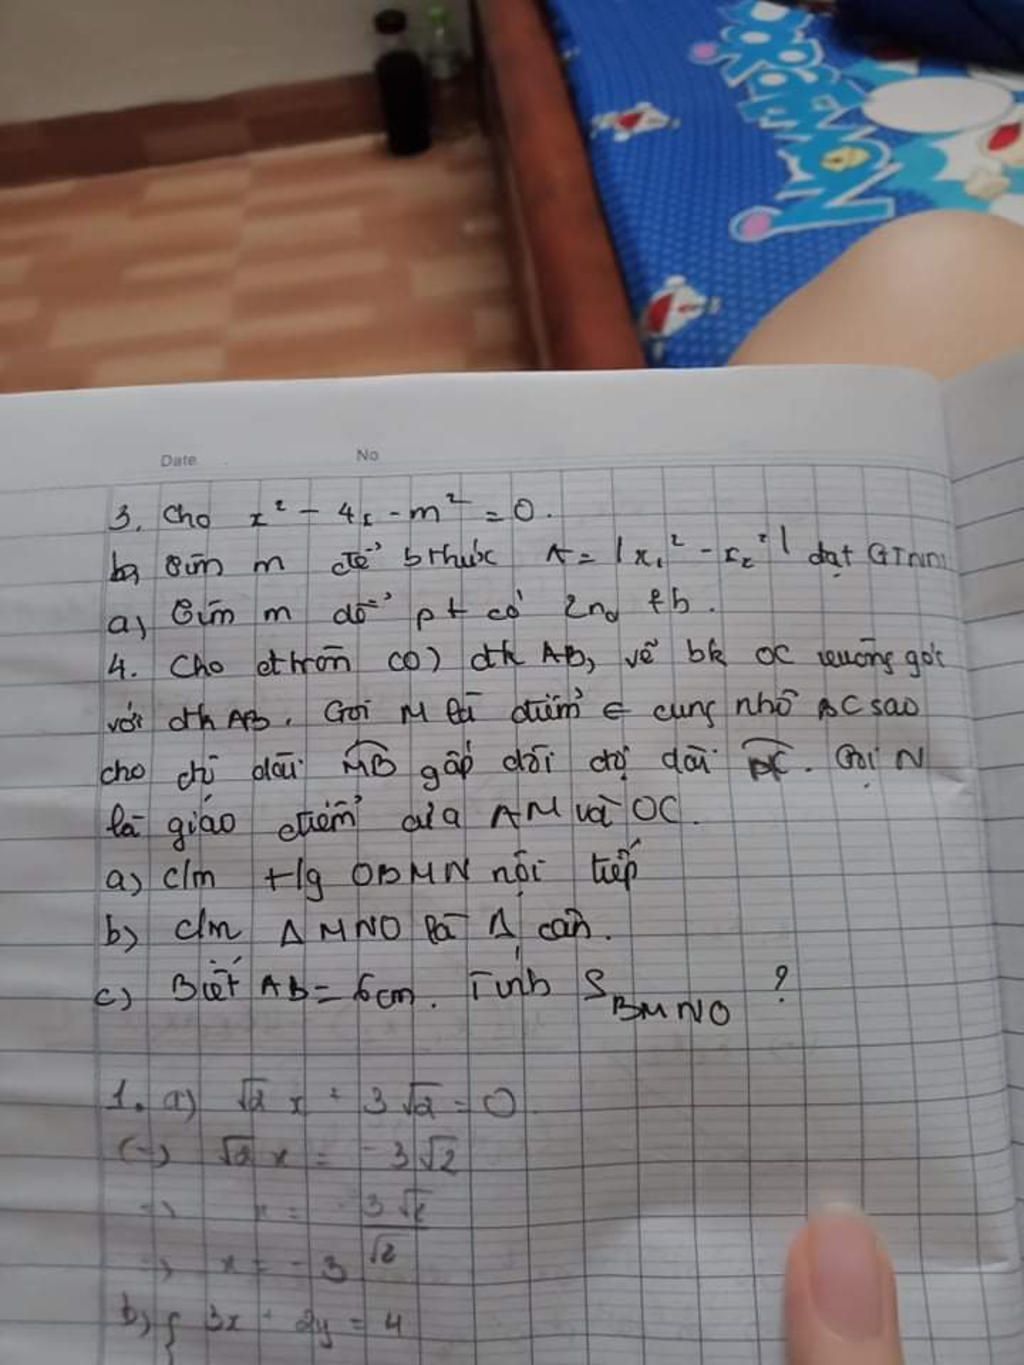 DORAEMON
Date No
3. Cho x² - 4x - m² = 0.
b) Tìm m để bthức A = |x₁² - x₂²| đạt GTNN
a) Tìm m để pt có 2no pb.
4. Cho đtròn (O) đk AB, vẽ bk OC vuông góc
với đk AB. Gọi M là điểm ∈ cung nhỏ BC sao
cho độ dài MB gấp đôi độ dài MC. Gọi N
là giao điểm của AM và OC.
a) c/m t/g OBMN nội tiếp
b) c/m Δ MNO là Δ cân.
c) Biết AB = 6cm. Tính S BMNO ?
1. a) √2 x + 3√2 = 0
(-) √2 x = -3√2
=> x = -3√2/√2
=> x = -3
b) { 3x + 2y = 4